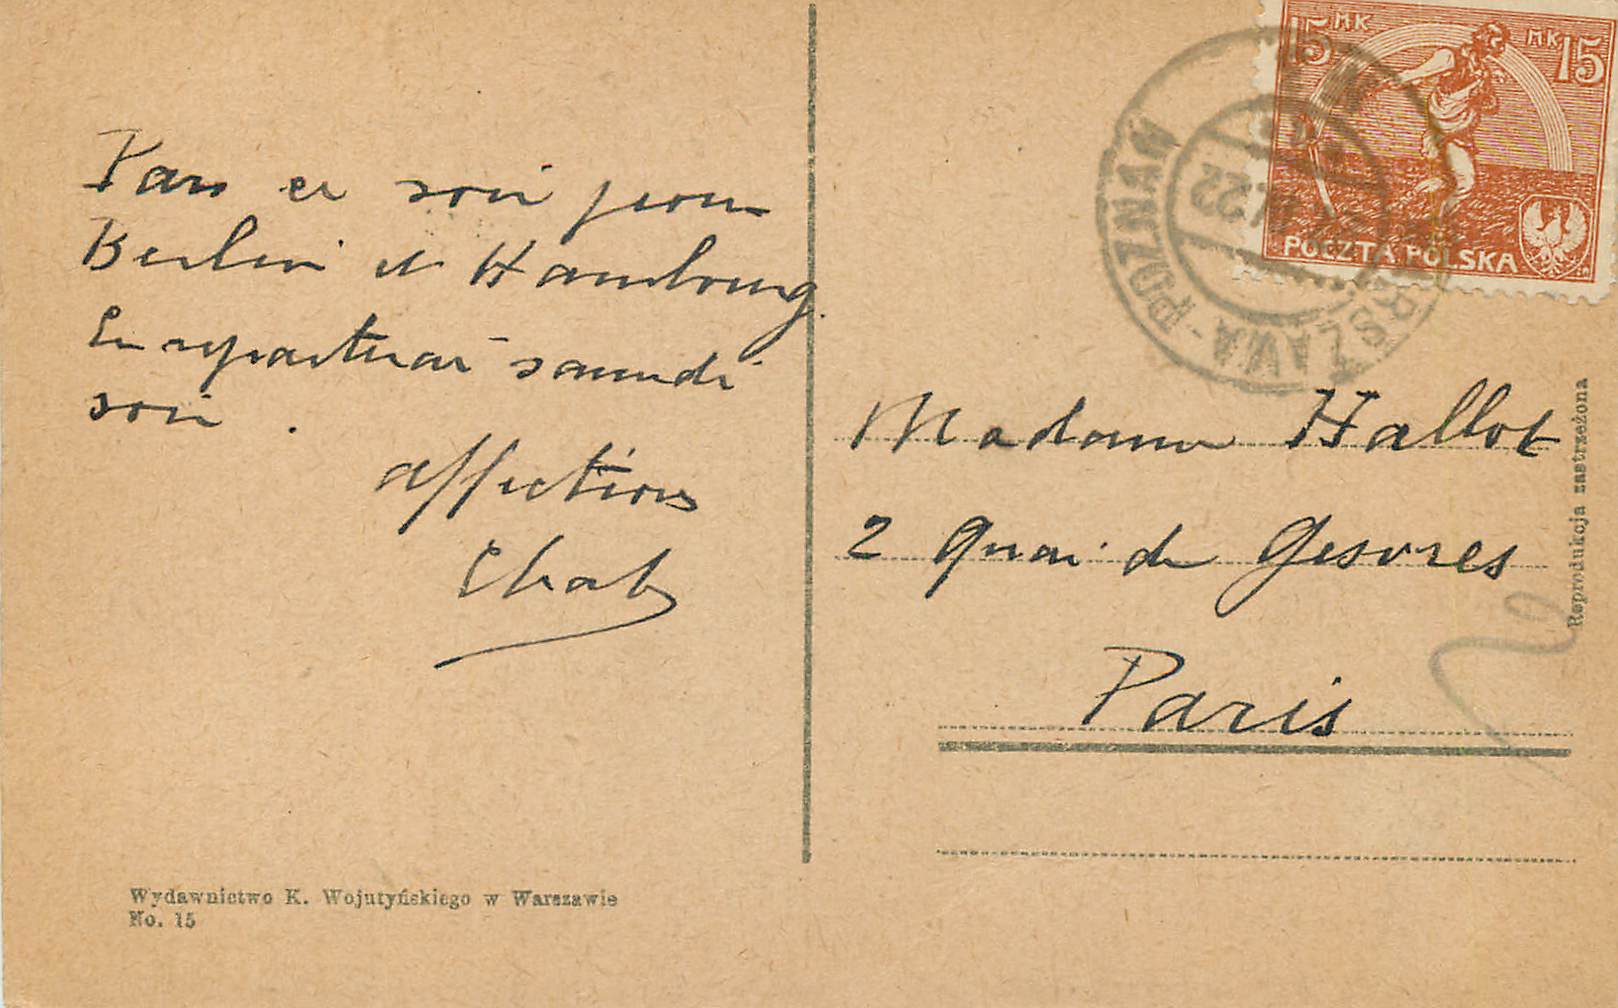 Pars ce soir pour
Berlin et Hambourg.
En repartirai samedi
soir.
affections
15 MK MK 15
POCZTA POLSKA
WARSZAWA - POZNAŃ
22
Madame Hallot
2 Quai de Gesvres
Paris
Reprodukcja zastrzeżona
Wydawnictwo K. Wojutyńskiego w Warszawie
No. 15